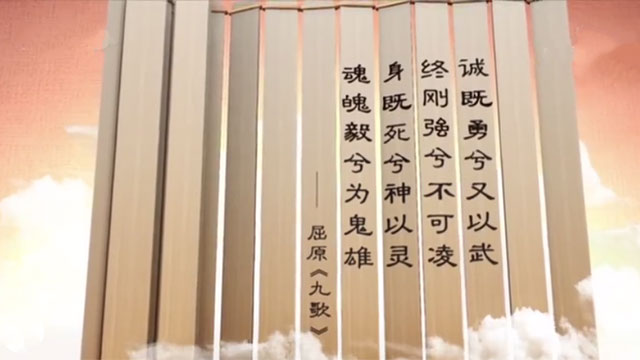 诚既勇兮又以武
终刚强兮不可凌
身既死兮神以灵
魂魄毅兮为鬼雄
——屈原《九歌》